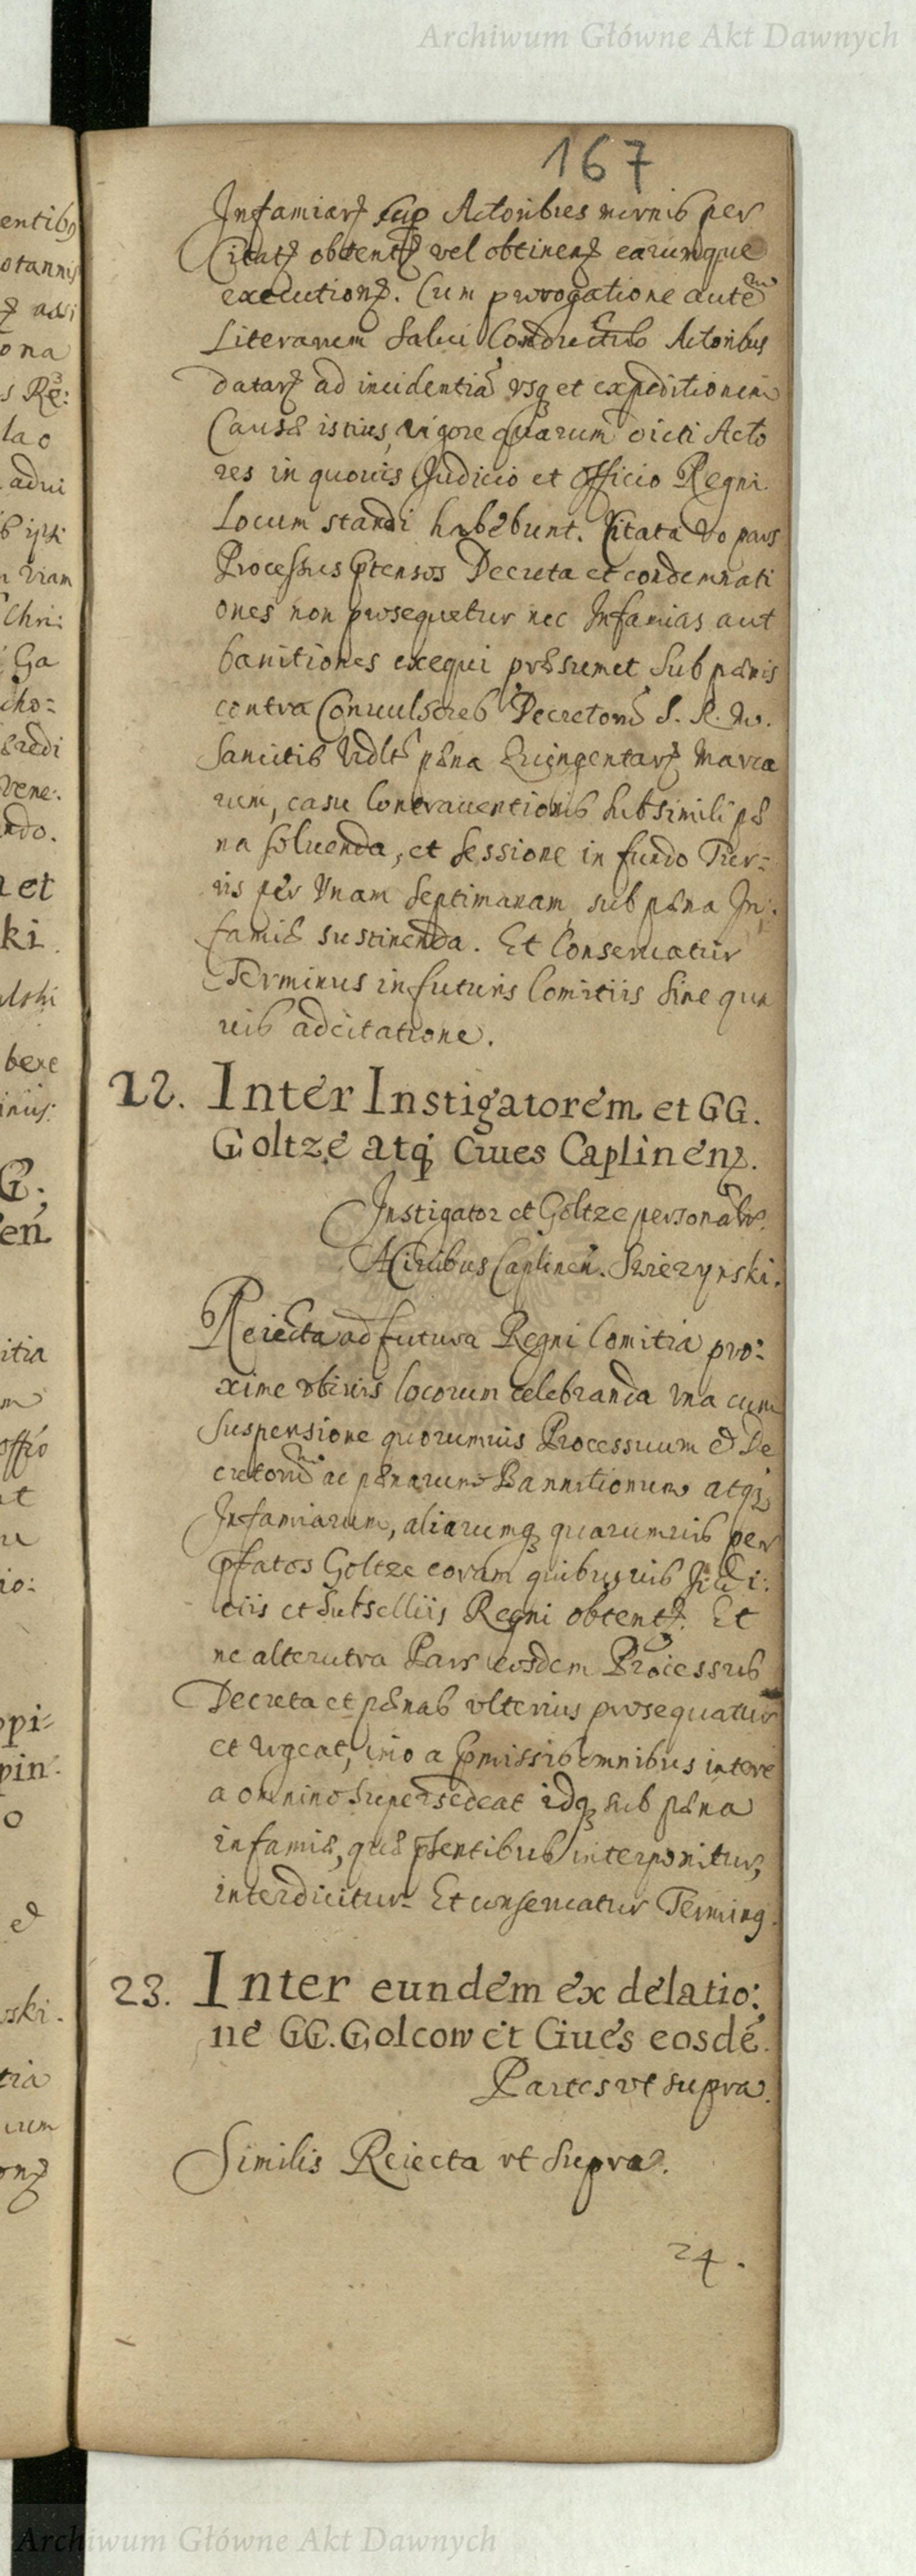 Archiwum Główne Akt Dawnych
167
Infamiarz sup Actoribus nimis per
Citatz obtentz vel obtinenz earumque
executionz. Cum prorogatione autem
Literarum Salvi Conductus Actoribus
datarz ad incidentia vsq et expeditionem
Causæ istius, vigore quarum dicti Acto
res in quovis Judicio et officio Regni
Locum standi habebunt. Citata vo pars
Processus ptensos Decreta et condemnati
ones non prosequetur nec Infamias aut
banitiones exequi præsumet sub pænis
contra Convulsores Decretorum S. R. M.
Sancitis Vdlt pæna Quingentarz Marca
rum, casu Contraventionis sub simili pæ
na solvenda, et sessione in fundo Tur=
ris per Vnam Septimanam sub pæna In:
famiæ sustinenda. Et Conservatur
Terminus in futuris Comitiis sine qua
vis adcitatione.
22. Inter Instigatorem et GG.
Goltze atq Cives Caplinenz.
Instigator et Goltze personalr.
A Civibus Caplinen.
Reiecta ad futura Regni Comitia pro:
xime vbivis locorum celebranda vna cum
Suspensione quorumvis Processuum et De
cretorum ac pænarum Bannitionum atqz
Infamiarum, aliarumqz quarumvis per
pfatos Goltze coram quibusvis Judi:
ciis et Subselliis Regni obtentz. Et
ne alterutra Pars eosdem Processus
Decreta et pænas vlterius prosequatur
et vrgeat, imo a pmissis omnibus intere
a omnino supersedeat idqz sub pæna
infamiæ, quæ pntibus interponitur,
interdicitur. Et conservatur Terming.
23. Inter eundem ex delatio:
ne GG. Golcow et Cives eosdé.
Partes vt supra.
Similis Reiecta vt supra.
24.
entib9
otannis
ona
s Re:
lao
advi
n viam
Chri:
Ga
cho:
vene:
ndo.
a et
ki.
bere
G;
en
itia
offio
io:
ppi=
pin
o
et
ski.
tia
onz
Archiwum Główne Akt Dawnych